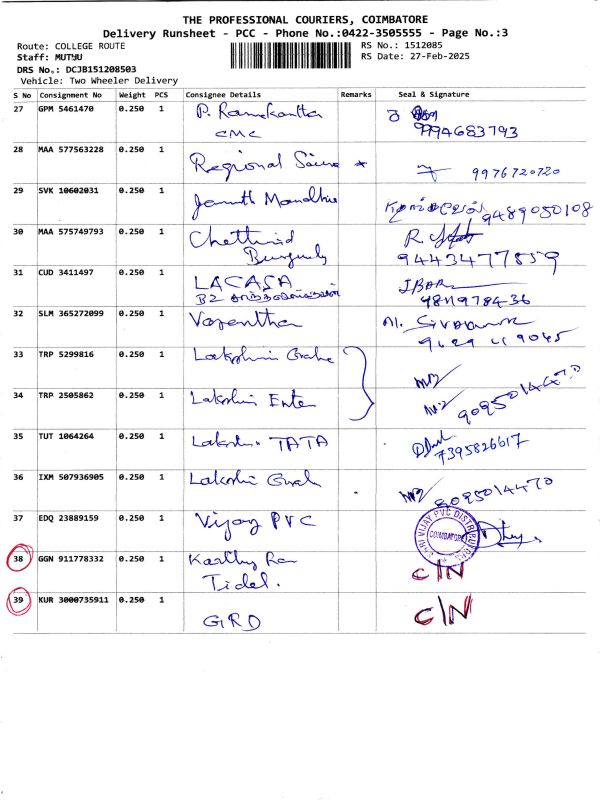 THE PROFESSIONAL COURIERS, COIMBATORE
Delivery Runsheet - PCC - Phone No.:0422-3505555 - Page No.:3
Route: COLLEGE ROUTE RS No.: 1512085
Staff: MUTHU RS Date: 27-Feb-2025
DRS No.: DCJB151208503
Vehicle: Two Wheeler Delivery
S No Consignment No Weight PCS Consignee Details Remarks Seal & Signature
27 GPM 5461470 0.250 1 P. Ramakantha
CMC 9994683793
28 MAA 577563228 0.250 1 Regional 9976720720
29 SVK 10602031 0.250 1 9489050108
30 MAA 575749793 0.250 1 Chettinad R
9443477859
31 CUD 3411497 0.250 1 LACASA
B2
32 SLM 365272099 0.250 1 Vasantha M.
33 TRP 5299816 0.250 1 Lakshmi
34 TRP 2505862 0.250 1 Lakshmi Enter 9095014470
35 TUT 1064264 0.250 1 Lakshmi TATA
7395826617
36 IXM 507936905 0.250 1 Lakshmi 9095014470
37 EDQ 23889159 0.250 1 Vijay PVC SHRI VIJAY PVC DISTRIBUTORS COIMBATORE
38 GGN 911778332 0.250 1 Karthy C/N
Tidel.
39 KUR 3000735911 0.250 1 C/N
GRD